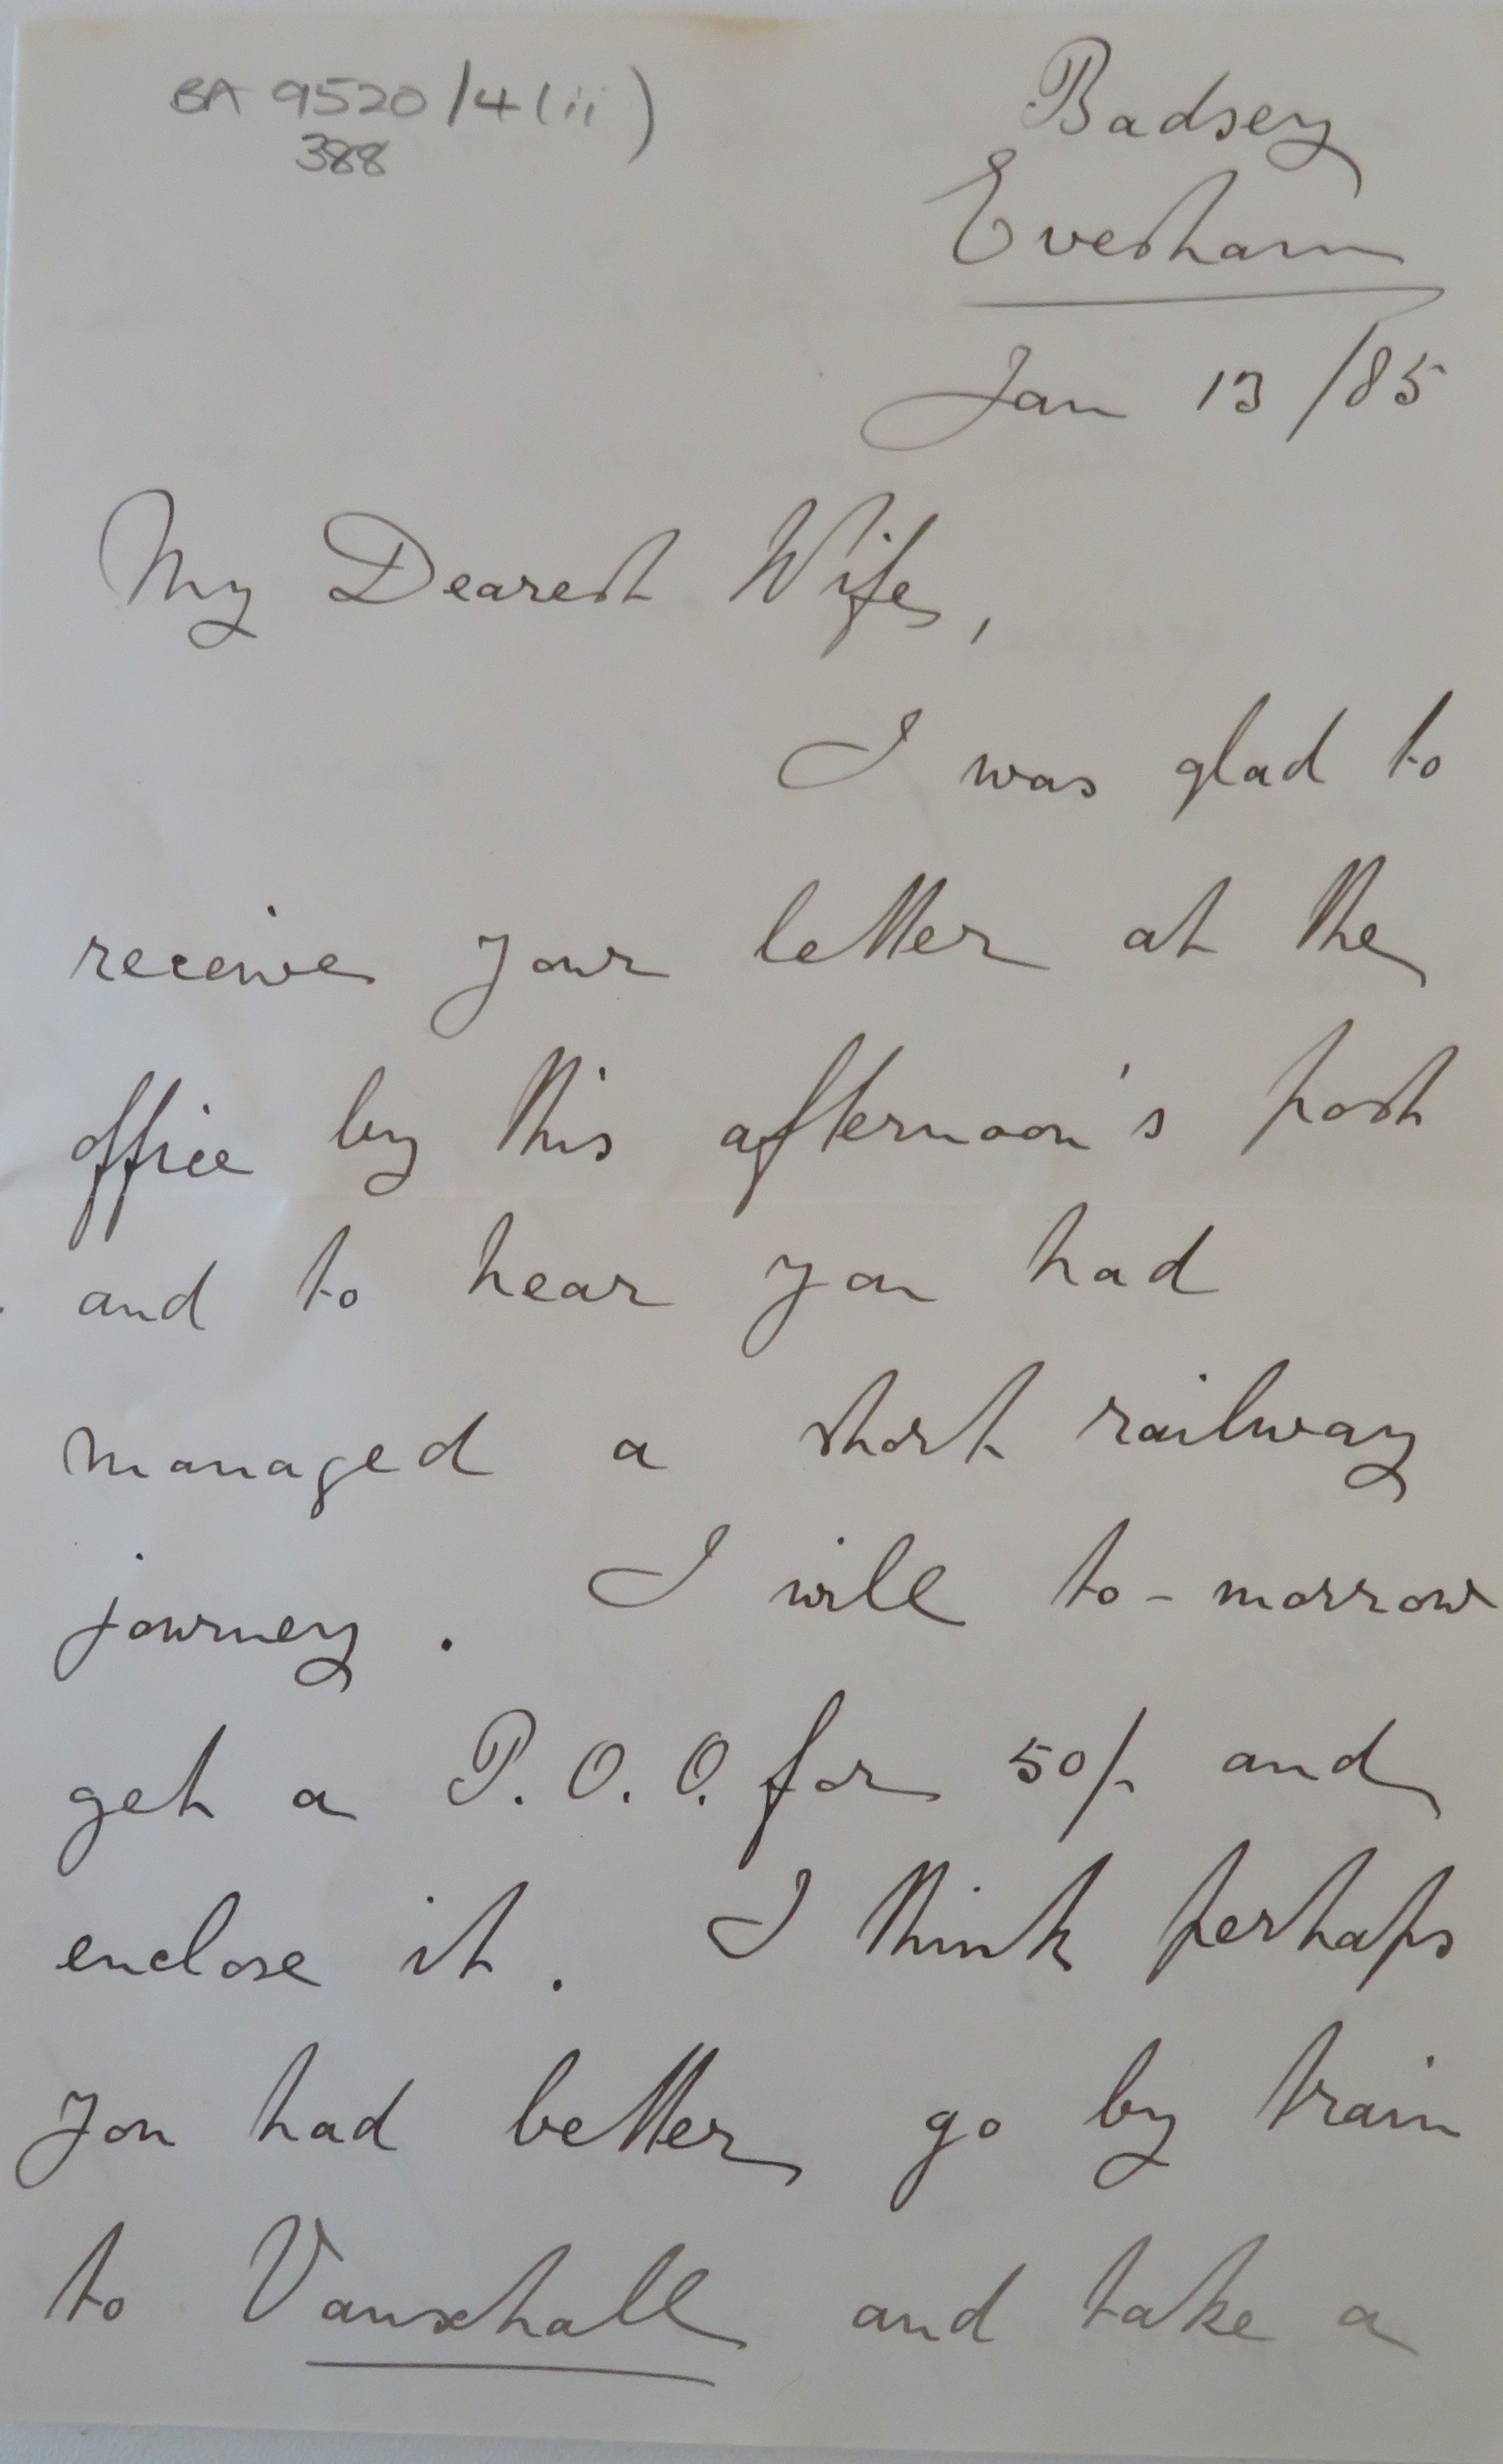 BA 9520/4(ii)
388
Badsey
Evesham
Jan 13/85
My Dearest Wife,
I was glad to
receive your letter at the
office by this afternoon's post
and to hear you had
managed a short railway
journey. I will to-morrow
get a P.O.O. for 50/- and
enclose it. I think perhaps
you had better go by train
to Vauxhall and take a